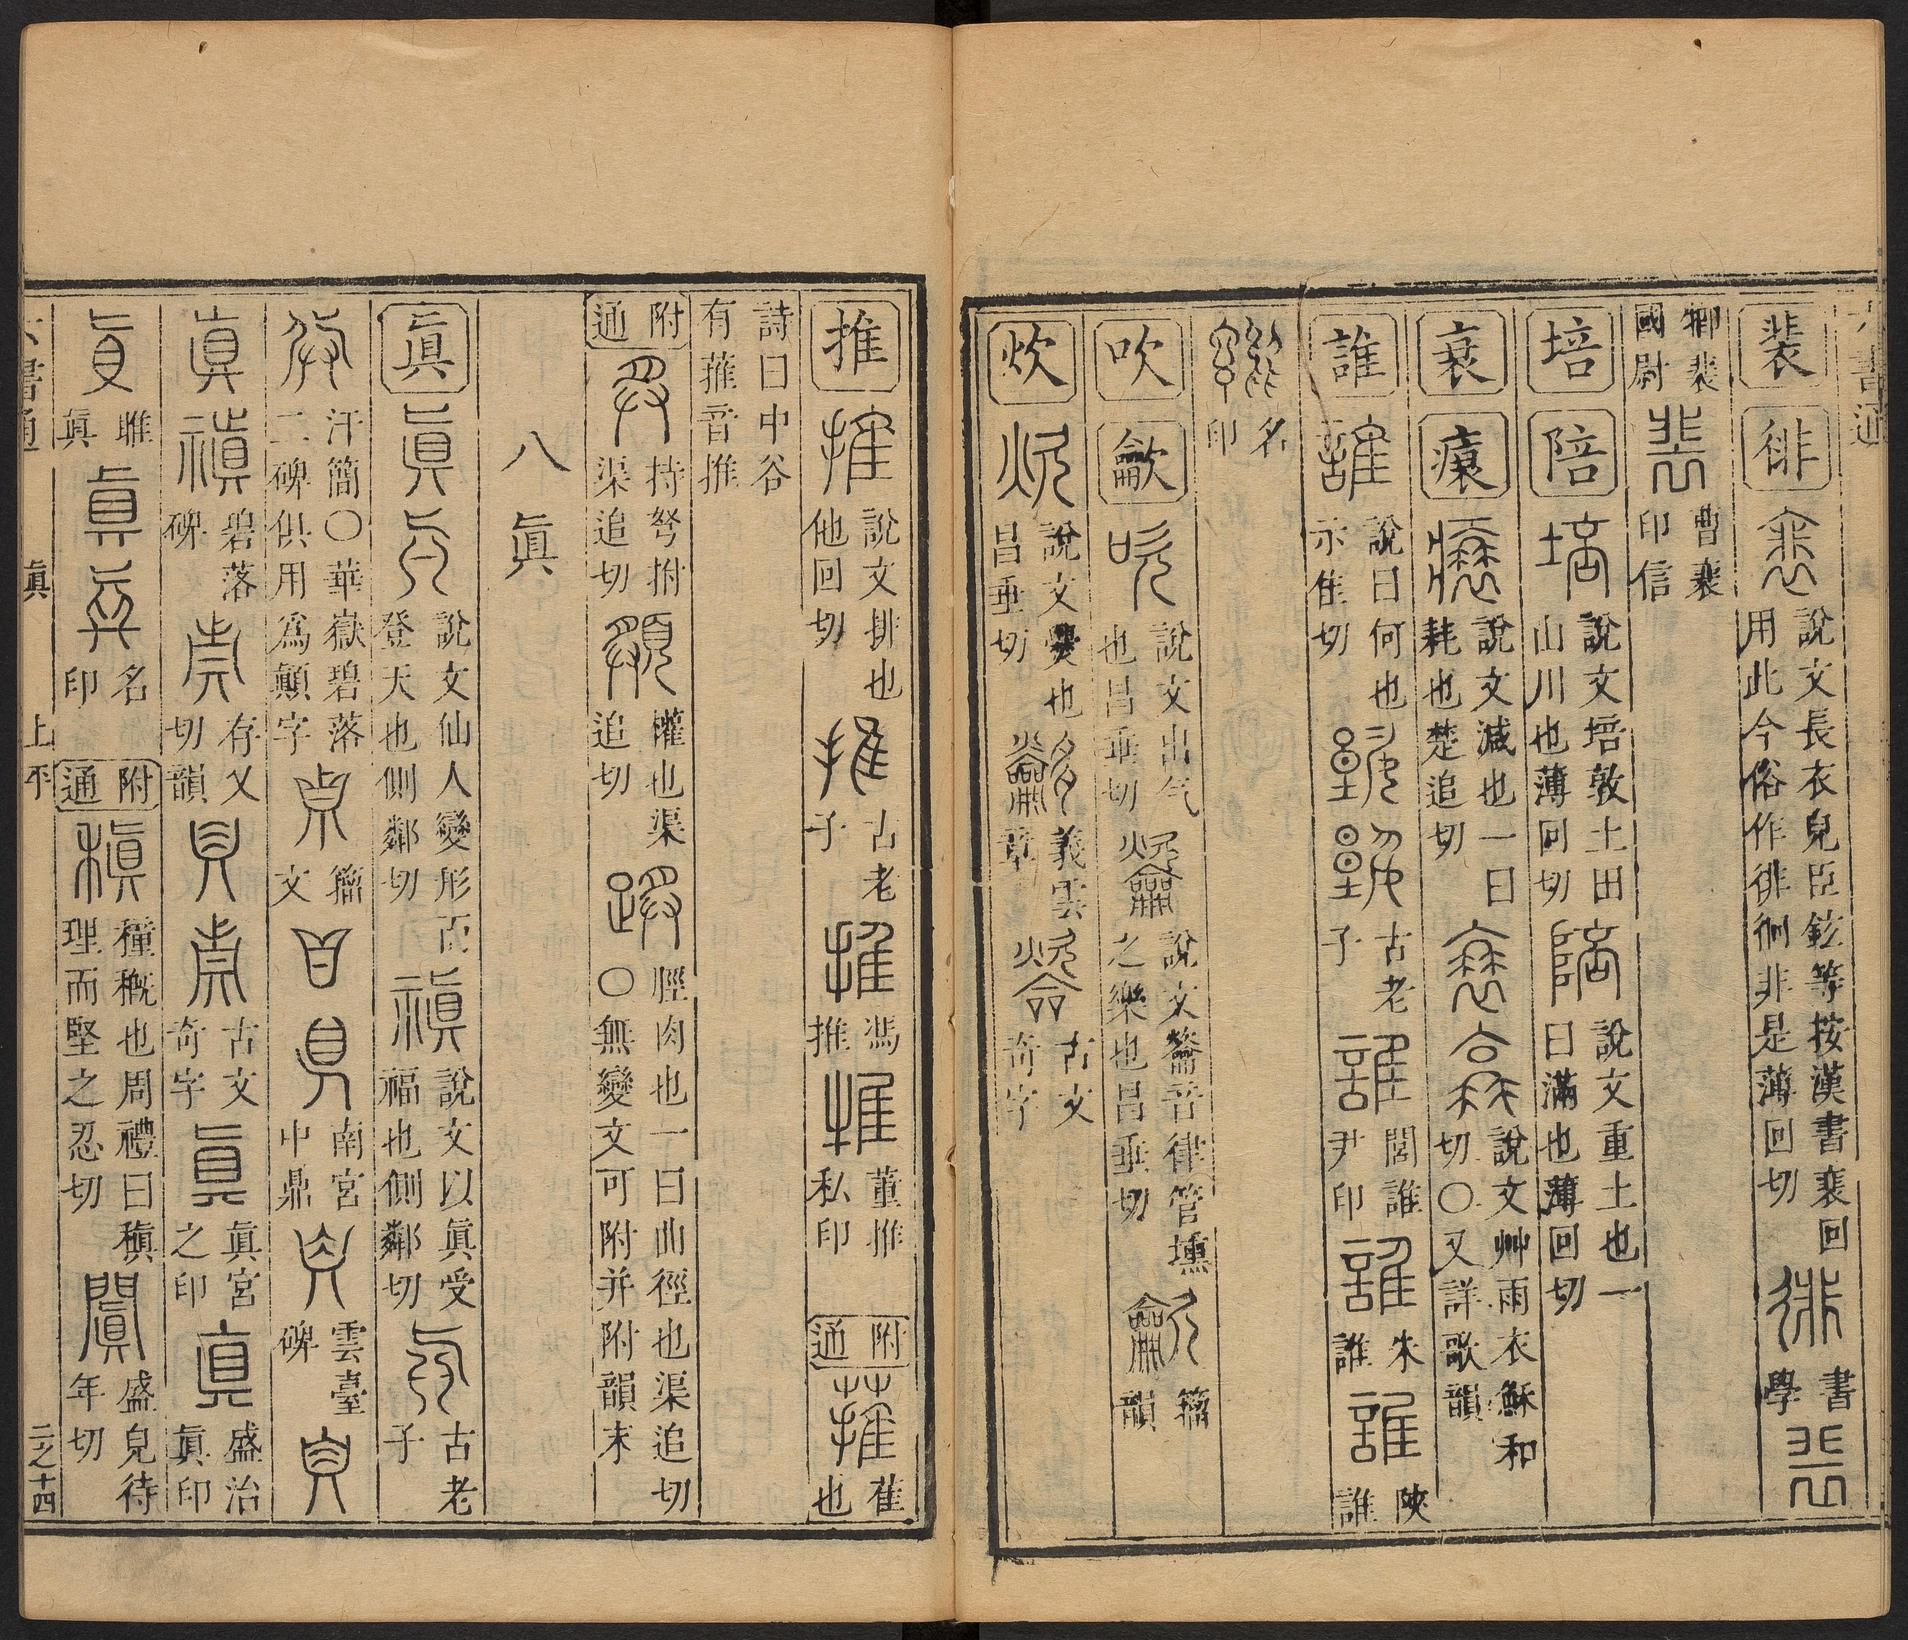 六書通
裴 徘 說文長衣皃臣鉉等按漢書裵回用此今俗作徘徊非是薄回切 書學
卿裴國尉 曹裵印信
培 陪 說文培敦土田山川也薄回切 說文重土也一曰滿也薄回切
衰 𤸬 說文減也一曰耗也楚追切 說文艸雨衣穌和切〇又詳歌韻
誰 說曰何也示隹切 古老子 閭誰尹印 朱誰 陝誰
名印
吹 龡 說文出气也昌垂切 說文籥音律管壎之樂也昌垂切 籀韻
炊 說文㸑也昌垂切 義雲章 古文奇字
推 說文排也他回切 古老子 馮推 董推私印 附通 萑也
詩曰中谷有蓷音推
附通 持弩拊渠追切 權也渠追切 脛肉也一曰曲徑也渠追切〇無變文可附并附韻末
八眞
眞 說文仙人變形而登天也側鄰切 說文以眞受福也側鄰切 古老子
汗簡〇華嶽碧落二碑俱用爲顚字 籀文 南宮中鼎 雲臺碑
碧落碑 存乂切韻 古文奇字 眞宮之印 盛治眞印
雎眞 名印 附通 穜穊也周禮曰稹理而堅之忍切 盛皃待年切
六書通 眞 上平 二之十四